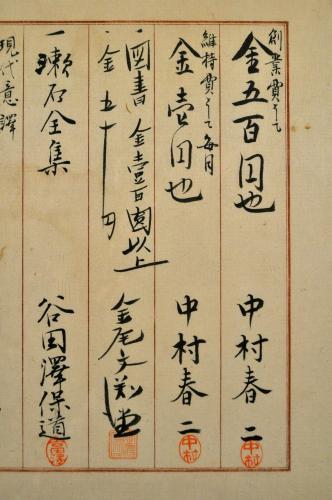 創業費として
金五百円也 中村春二
維持費として毎月
金壱円也 中村春二
一図書 金壹百圓以上 金尾文淵堂
一金五十円
一漱石全集 谷田澤保道
現代意譯